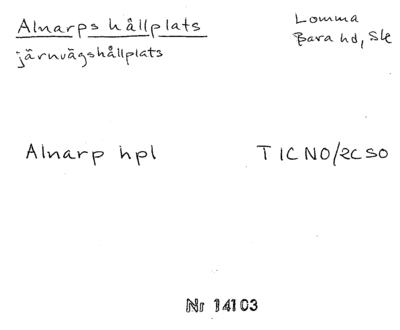 Alnarps hållplats
järnvägshållplats
Lomma
Bara hd, Ske
Alnarp hpl
T 1C NO/2C SO
Nr 14103